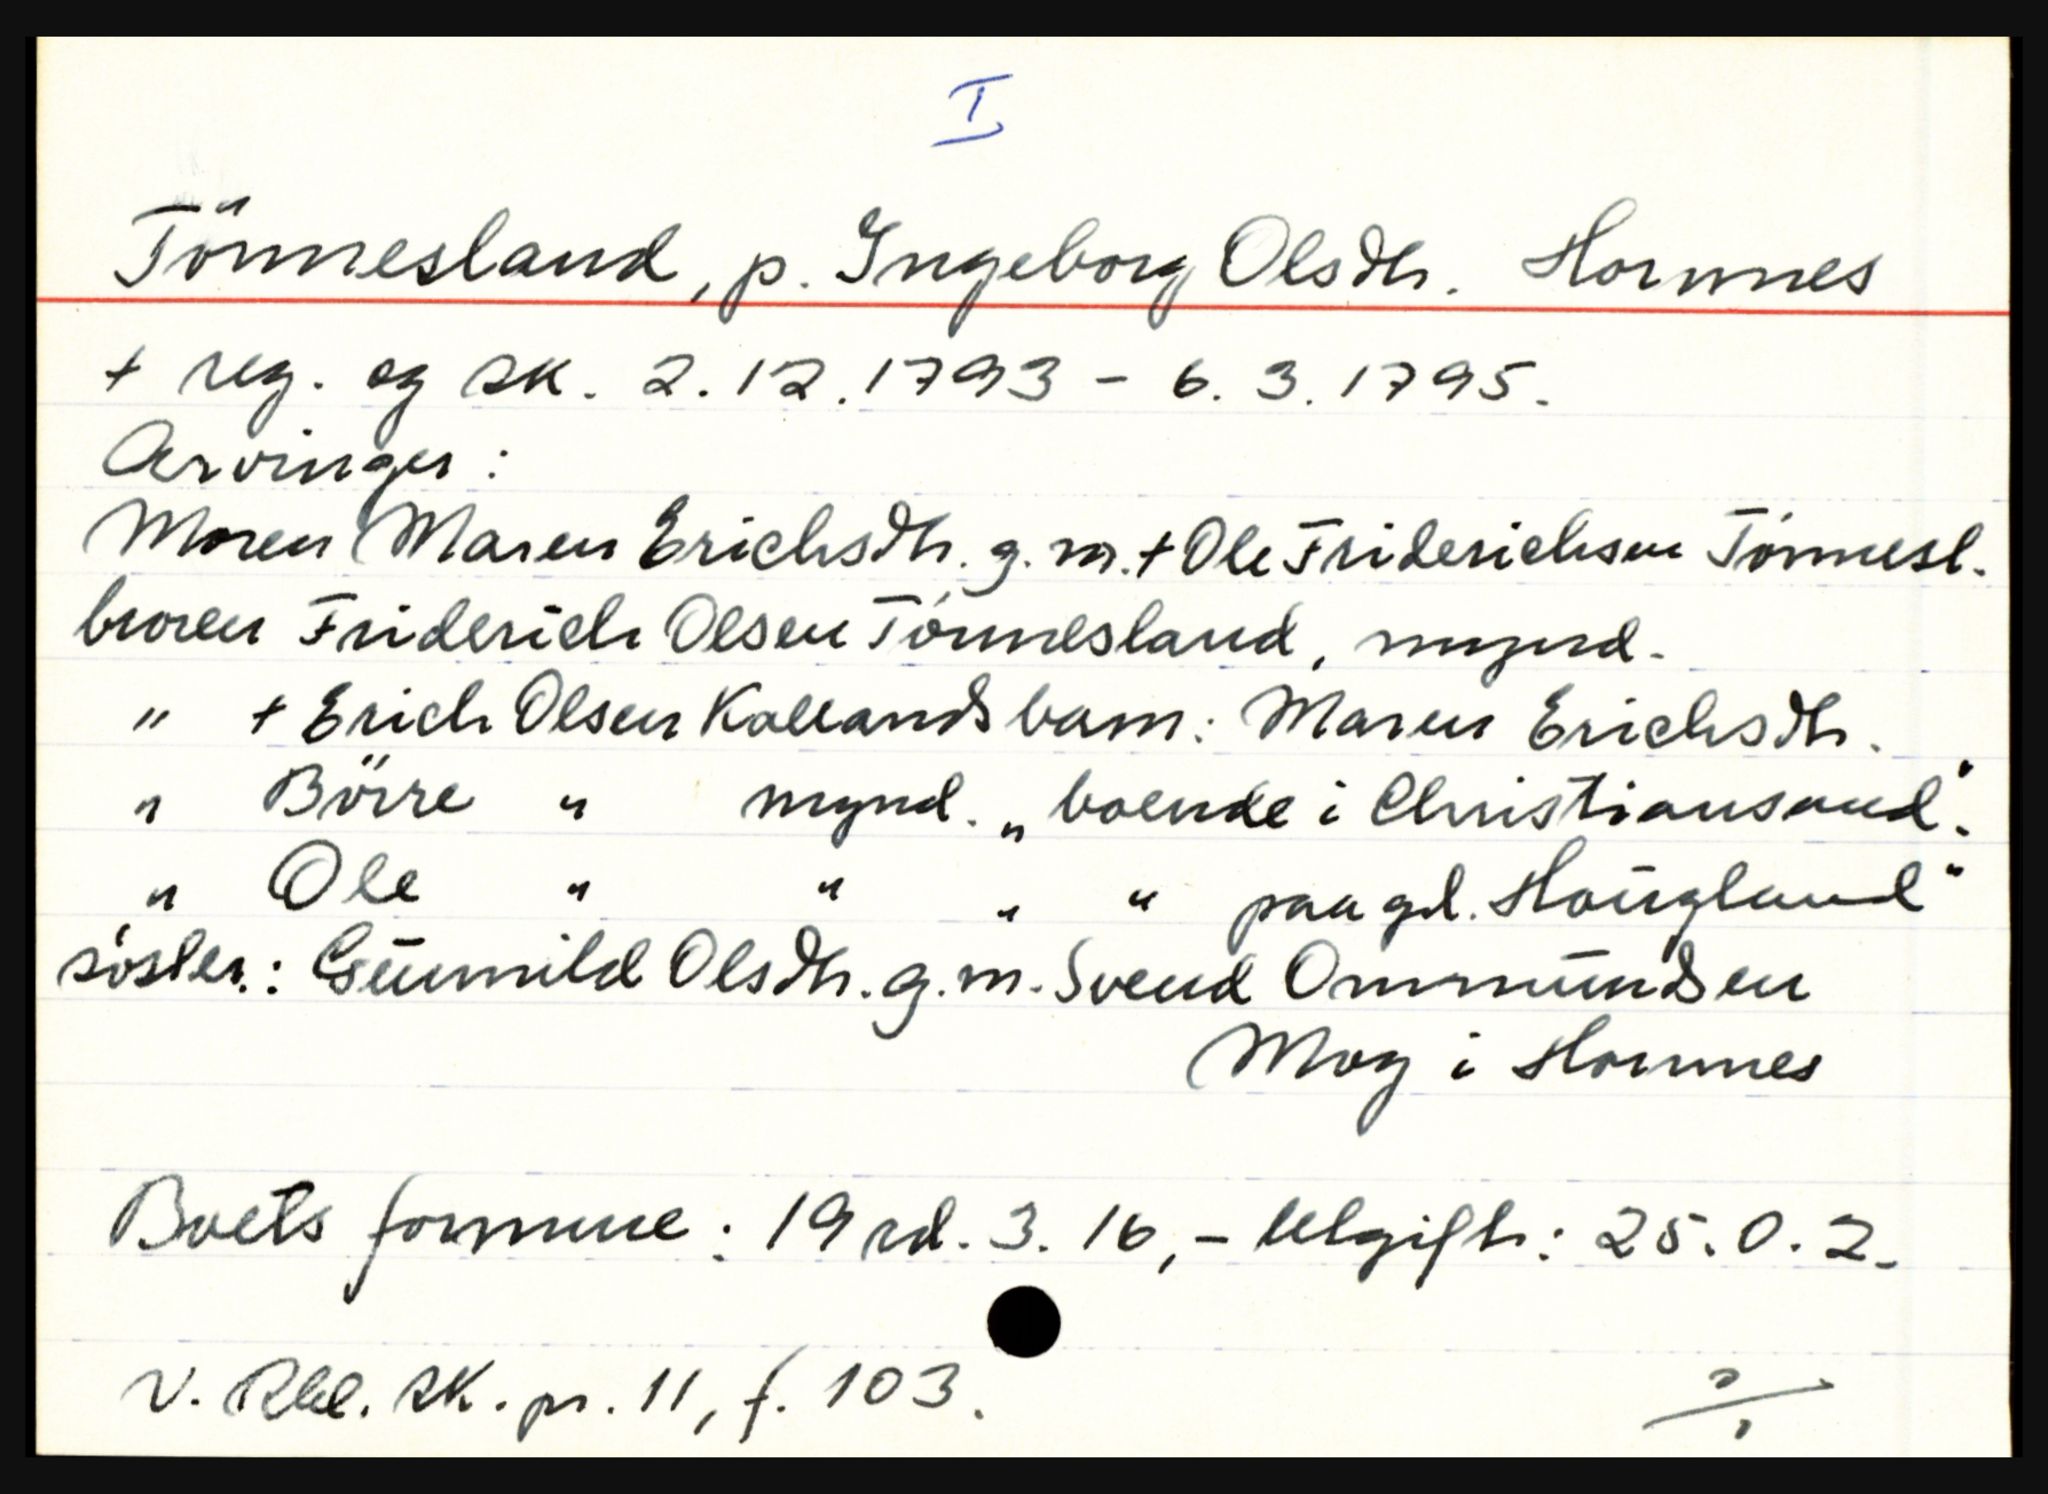 I
Tönnesland, p. Ingeborg Olsdtr. Hornnes
+ reg. og sk. 2.12.1793 - 6.3.1795.
Arvinger:
Moren Maren Erichsdtr. g.m. + Ole Friderichsen Tönnesl.
broren Friderich Olsen Tönnesland, mynd.
" + Erich Olsen Kallands barn: Maren Erichsdtr.
" Börre " mynd. „boende i Christiansand".
" Ole " " „ " paa gd. Hougland"
söster: Gunnild Olsdtr. g.m. Svend Ommundsen
Moy i Hornnes
Boets formue: 19 rd. 3. 16, - Utgift: 25. 0. 2.
V. Rbl. sk. pr. 11, f. 103.